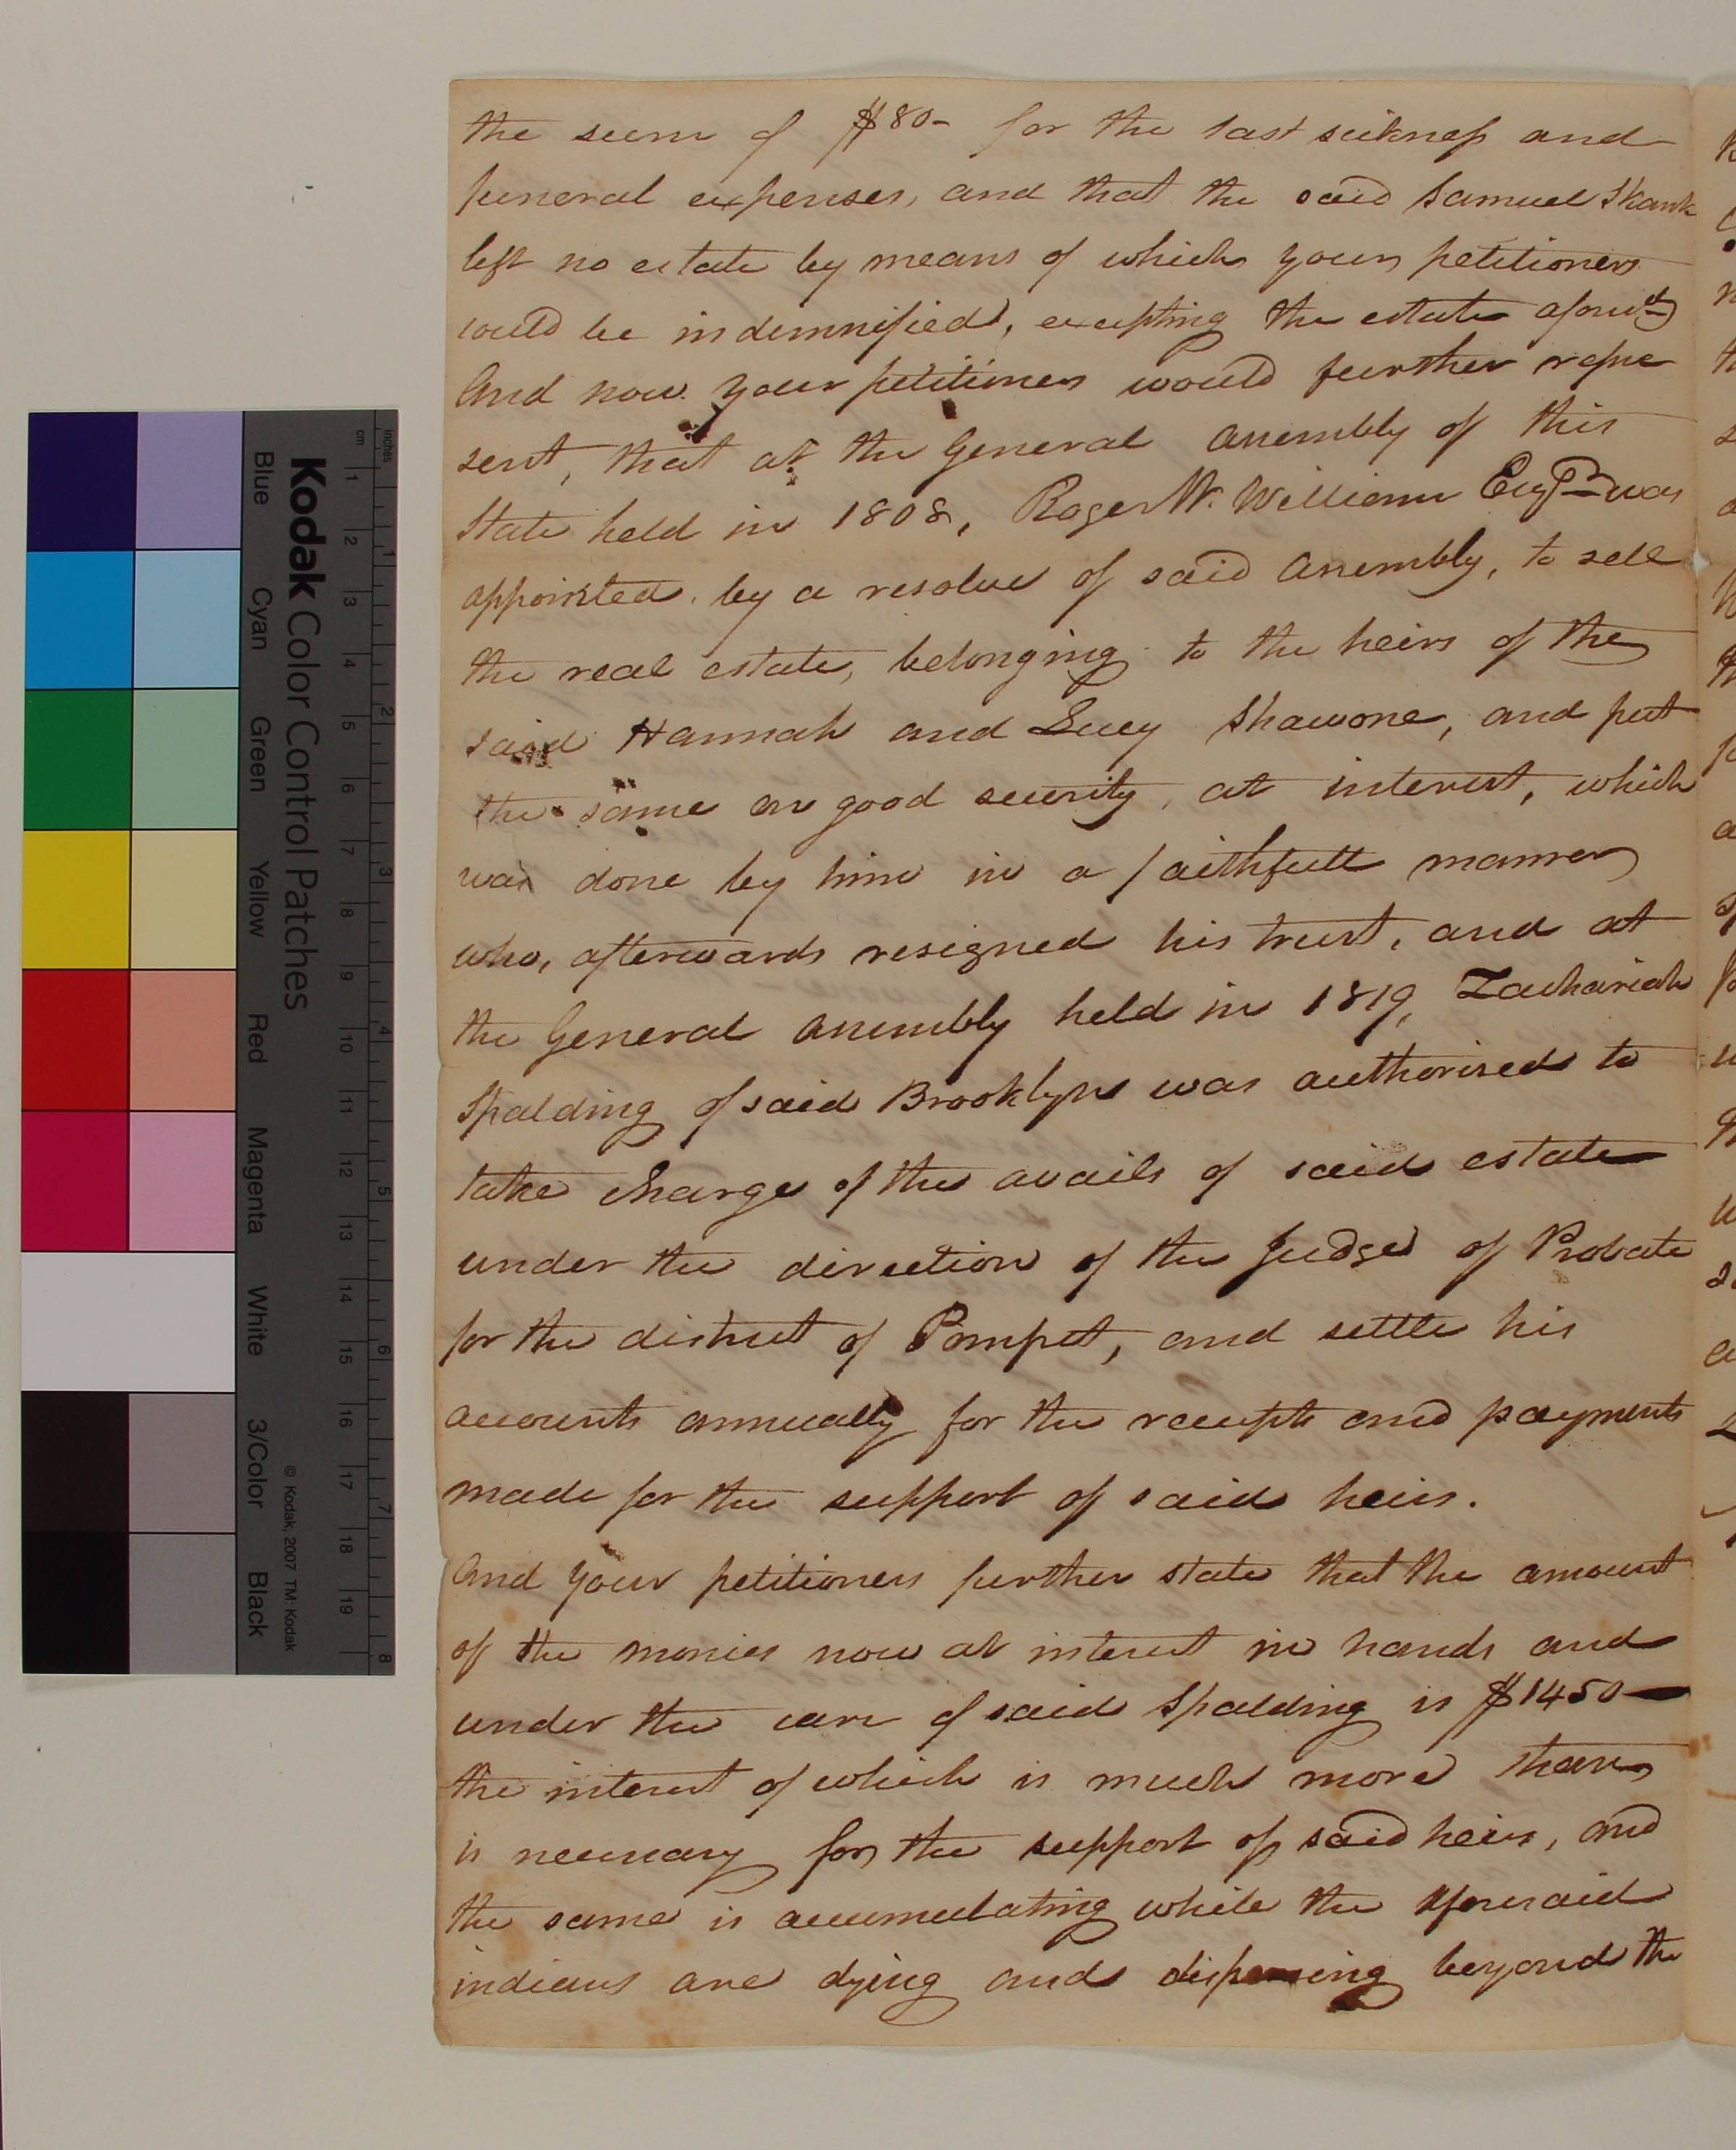 the sum of $80- for the last sickness and
funeral expenses, and that the said Samuel Shank
left no estate by means of which your petitioners
could be indemnified, excepting the estate aforesd
And now your petitioners would further repre
sent, that at the General assembly of this
State held in 1808, Roger W. Williams Esqr was
appointed by a resolve of said assembly, to sell
the real estate, belonging to the heirs of the
said Hannah and Lucy Shawone, and put
the same on good security, at interest, which
was done by him in a faithfull manner
who, afterwards resigned his trust, and at
the General assembly held in 1819, Zachariah
Spalding of said Brooklyn was authorised to
take charge of the avails of said estate
under the direction of the Judge of Probate
for the district of Pomfret, and settle his
accounts annually for the receipts and payments
made for the support of said heirs.
And your petitioners further state that the amount
of the monies now at interest in hands and
under the care of said Spalding is $1450—
the interest of which is much more than
is necessary for the support of said heirs, and
the same is accumulating while the aforesaid
indians are dying and dispersing beyond the
Kodak Color Control Patches
Blue Cyan Green Yellow Red Magenta White 3/Color Black
© Kodak, 2007 TM: Kodak
cm 1 2 3 4 5 6 7 8 9 10 11 12 13 14 15 16 17 18 19
inches 1 2 3 4 5 6 7 8